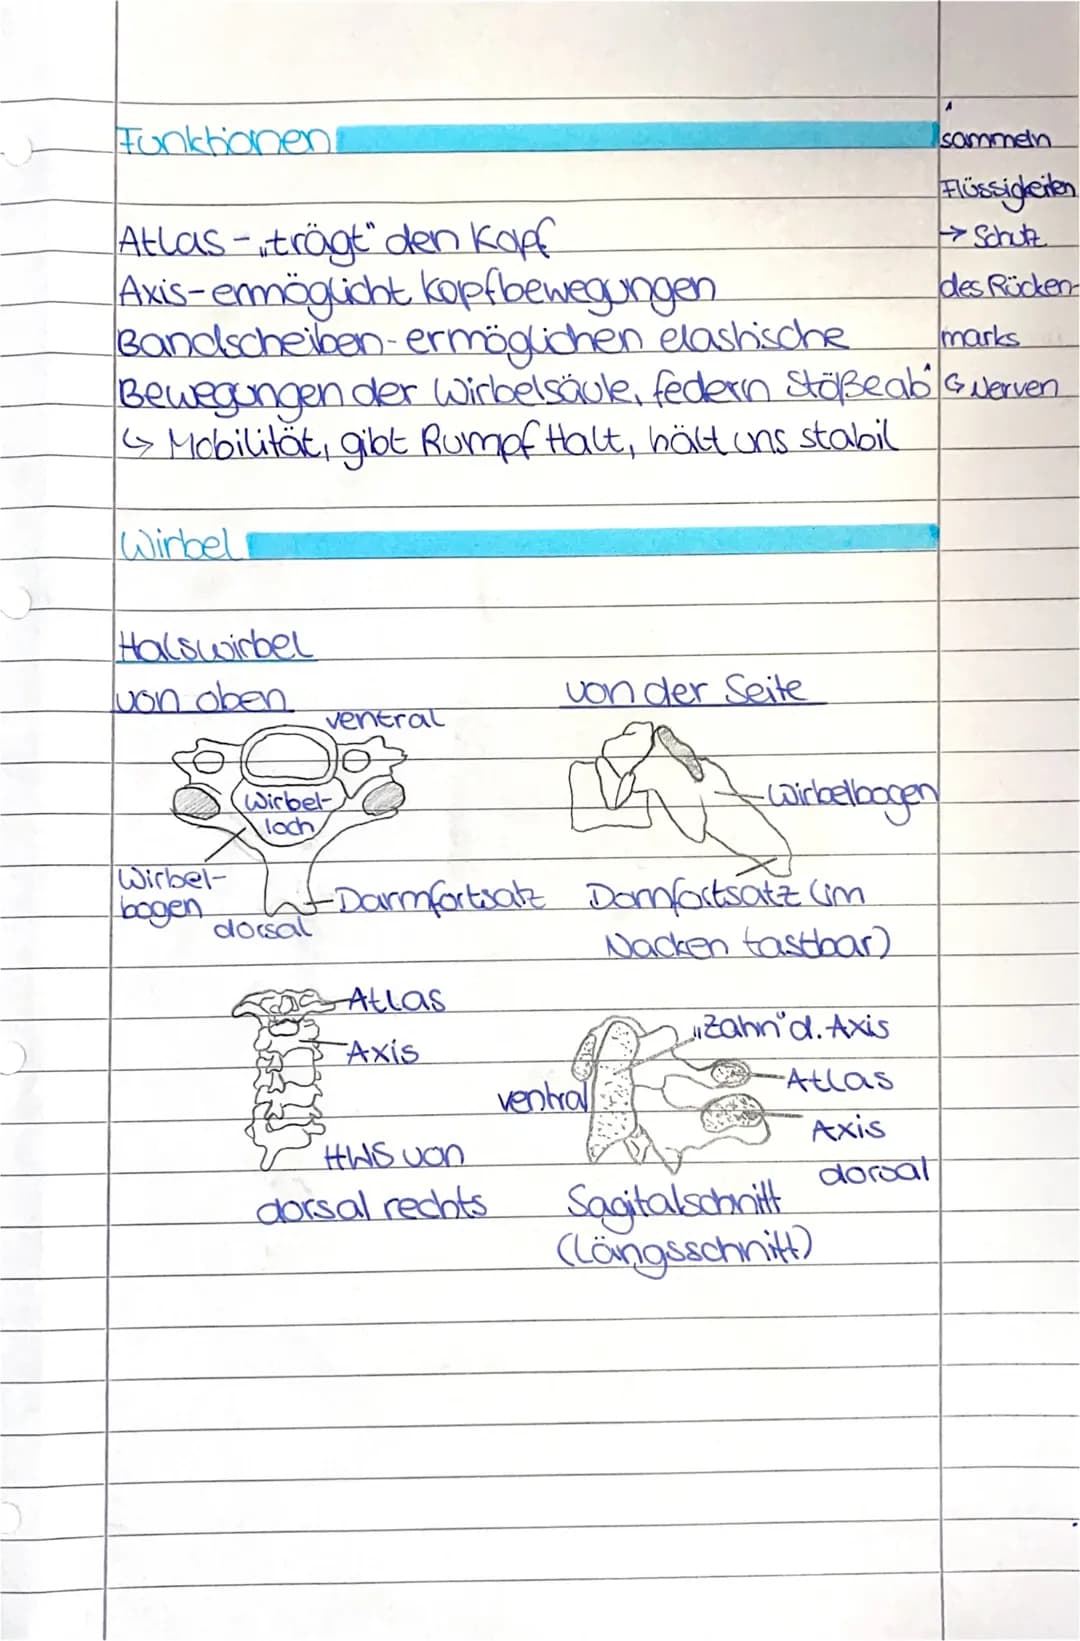 Funktionen
Atlas - „trägt" den Kopf
Axis - ermöglicht Kopfbewegungen
Bandscheiben - ermöglichen elastische
Bewegungen der Wirbelsäule, federn Stöße ab
↳ Mobilität, gibt Rumpf Halt, hält uns stabil
sammeln
Flüssigkeiten
→ Schutz
des Rücken-
marks
↳ Nerven
Wirbel
Halswirbel
von oben
ventral
Wirbel-
loch
Wirbel-
bogen
dorsal
Darmfortsatz
von der Seite
Wirbelbogen
Dornfortsatz (im
Nacken tastbar)
Atlas
Axis
HWS von
dorsal rechts
„Zahn" d. Axis
Atlas
ventral
Axis
dorsal
Sagitalschnitt
(Längsschnitt)